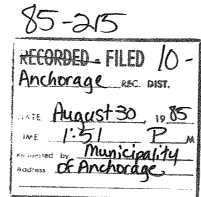 85-215
RECORDED - FILED 10 -
Anchorage REC. DIST.
DATE August 30 1985
TIME 1:51 P M
Requested by Municipality
Address of Anchorage